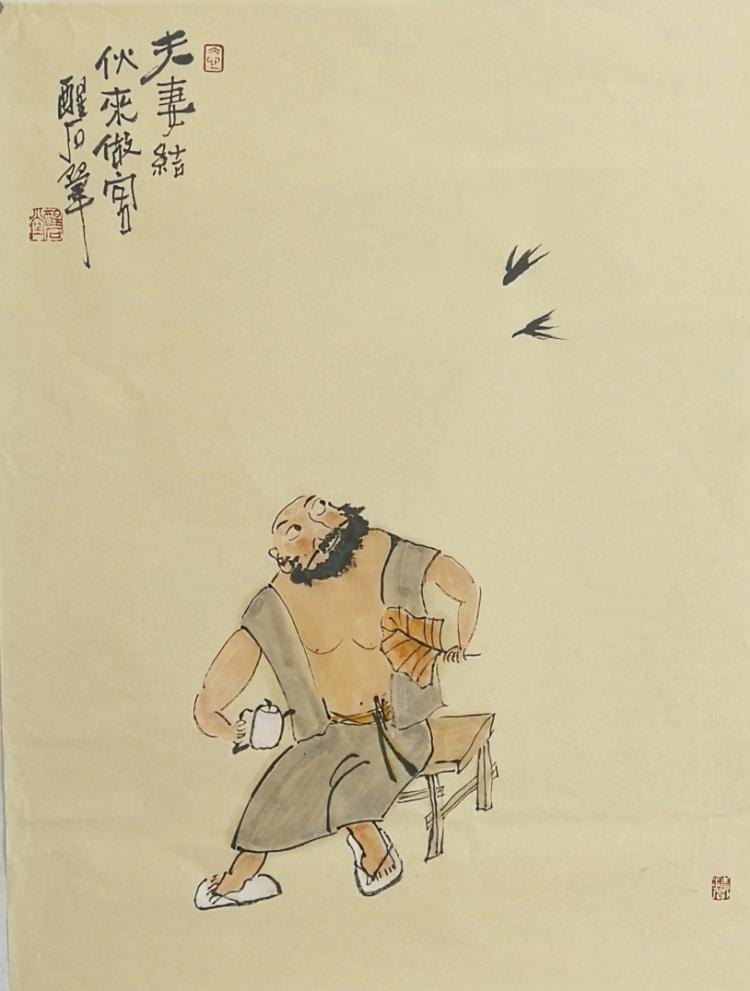 夫妻結
伙來做窩
醒石筆
醒石